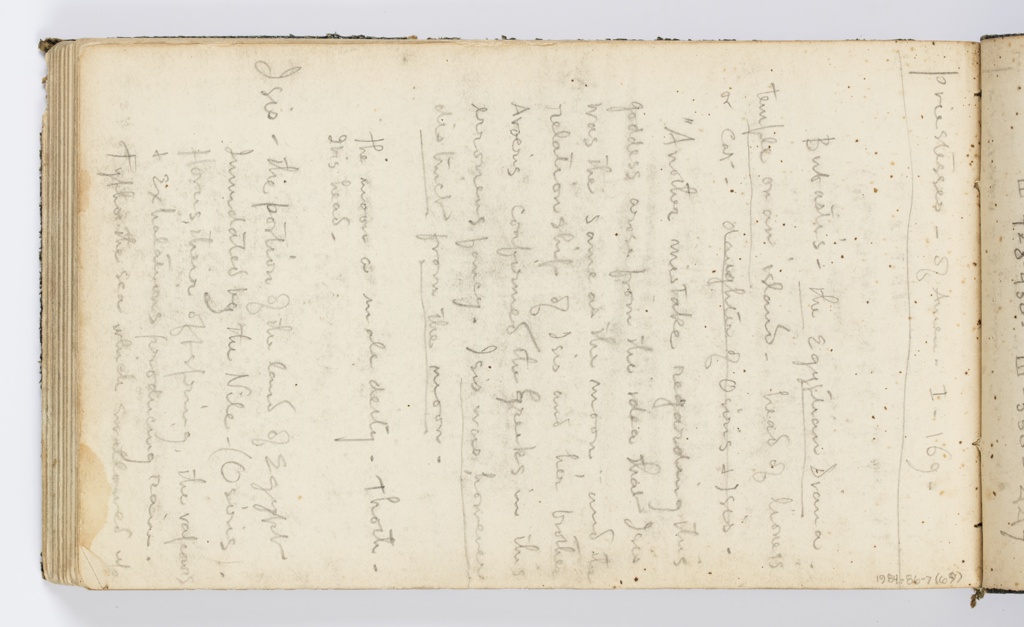 priestesses - of Amen - I - 169.
Bubastis - the Egyptian Diana -
temple on an island - head of lioness
or cat - daughter of Osiris & Isis -
"Another mistake regarding this
goddess arose from the idea that Isis
was the same as the moon - and the
relationship of Isis and her brother
Aroeris confirmed the Greeks in this
erroneous fancy. Isis was, however
distinct from the moon -
The moon as male deity - Thoth -
Ibis head -
Isis - the portion of the land of Egypt
Inundated by the Nile - (Osiris) -
Horus, their offspring, the vapours
& Exhalations producing rain -
Typhon the sea which swallowed up
1984-36-7 (68)